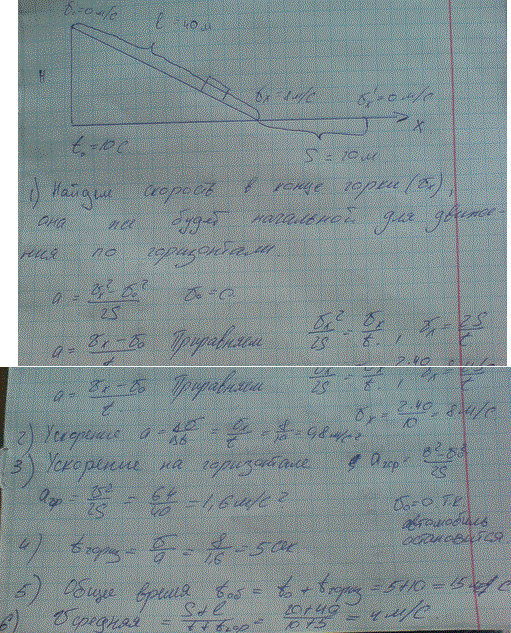 v₀=0м/с
l = 40м
H
vₓ=8м/с
vₓ'=0м/с
X
t₀=10с
S = 20м
1) Найдем скорость в конце горки (vₓ),
она же будет начальной для движе-
ния по горизонтали.
a = (vₓ² - v₀²)/2S v₀=0
a = (vₓ - v₀)/t Приравняем vₓ²/2S = vₓ/t, vₓ = 2S/t
a = (vₓ - v₀)/t Приравняем
vₓ = 2·40/10 = 8м/с
2) Ускорение a = Δv/Δt = vₓ/t = 8/10 = 0,8м/с²
3) Ускорение на горизонтале a гор = (v²-v₀²)/2S
a гор = v²/2S = 64/40 = 1,6м/с²
v₀=0 т.к.
автомобиль
остановится.
4) t гориз = v/a = 8/1,6 = 5 сек
5) Общее время t об = t₀ + t гориз = 5+10 = 15 с
6) v средняя = (S+l)/(t+t гор) = (20+40)/(10+5) = 4м/с